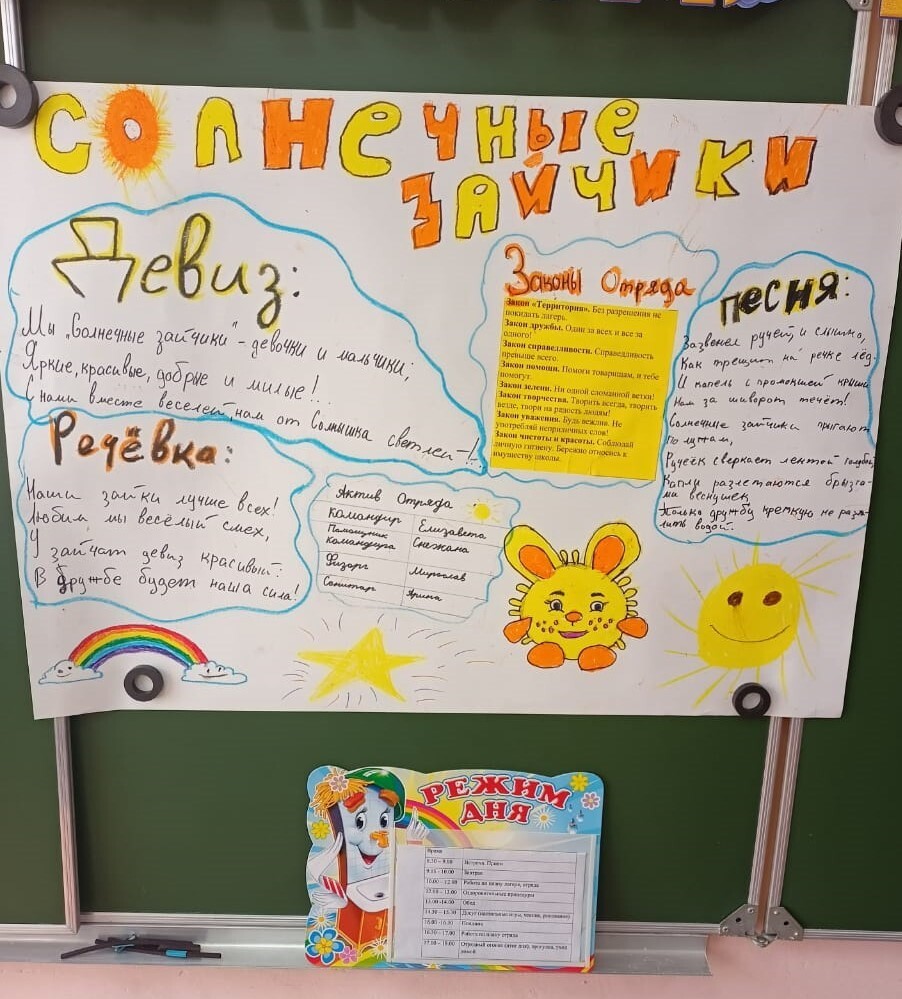 СОЛНЕЧНЫЕ
ЗАЙЧИКИ
Девиз:
Мы „Солнечные зайчики" - девочки и мальчики;
Яркие, красивые, добрые и милые!
С нами вместе веселей, нам от Солнышка светлей-!
Речёвка:
Наши зайки лучше всех!
Любим мы весёлый смех,
У зайчат девиз красивый:
В дружбе будет наша сила!
Актив Отряда
Командир Елизавета
Помощник Командира Снежана
Физорг Мирослав
Санитар Арина
Законы Отряда
Закон «Территория». Без разрешения не
покидать лагерь.
Закон дружбы. Один за всех и все за
одного!
Закон справедливости. Справедливость
превыше всего.
Закон помощи. Помоги товарищам, и тебе
помогут.
Закон зелени. Ни одной сломанной ветки!
Закон творчества. Творить всегда, творить
везде, твори на радость людям!
Закон уважения. Будь вежлив. Не
употребляй неприличных слов!
Закон чистоты и красоты. Соблюдай
личную гигиену. Бережно относись к
имуществу школы.
песня:
Зазвенел ручей и слышно,
Как трещит на речке лёд.
И капель с промокшей крыши
Нам за шиворот течёт!
Солнечные зайчики прыгают
по лужам,
Ручеёк сверкает лентой голубой
Капли разлетаются брызга-
ми веснушек,
Только дружбу крепкую не разо-
лить водой.
РЕЖИМ
ДНЯ
Время
8.30 – 9.00
9.15 - 10.00 Завтрак
10.00 - 12.00 Работа по плану лагеря, отряда
12.00 - 13.00 Оздоровительные процедуры
13.00 -14.00 Обед
16.00 -16.30 Полдник
16.30 – 17.00 Работа по плану отряда
17.00 – 18.00